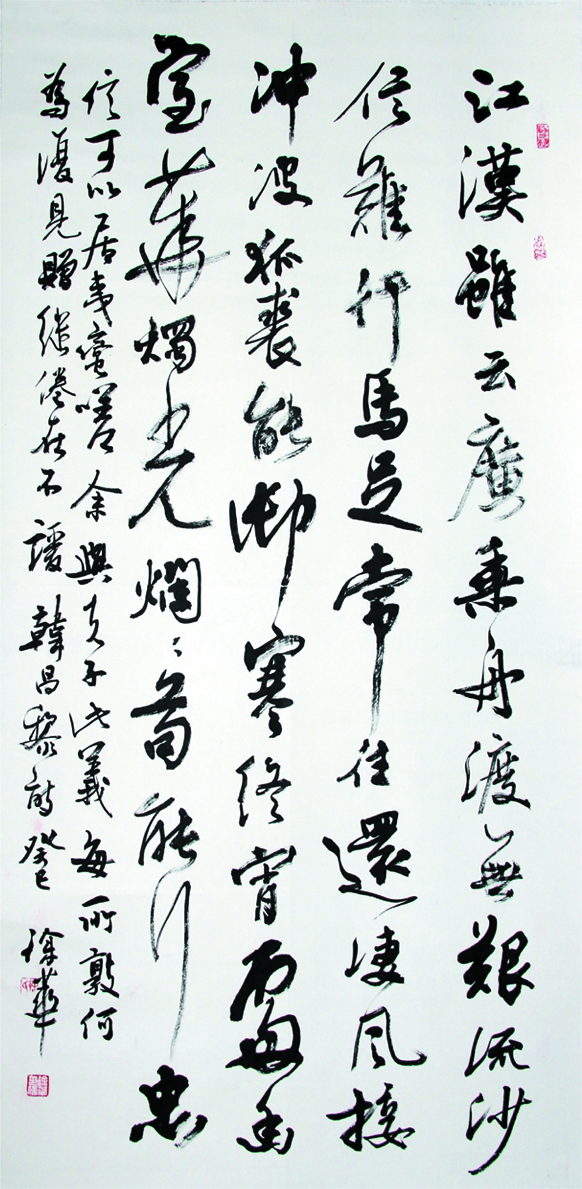 江漢雖云廣乘舟渡無艱流沙
信難行馬足常往還淒風接
冲波狐裘能御寒終宵處幽
室華燭光爛〻苟能行忠
信可以居夷蠻嗟余與夫子此義每所敦何
為復見贈繾綣在不諼 韓昌黎詩 癸巳 徐華